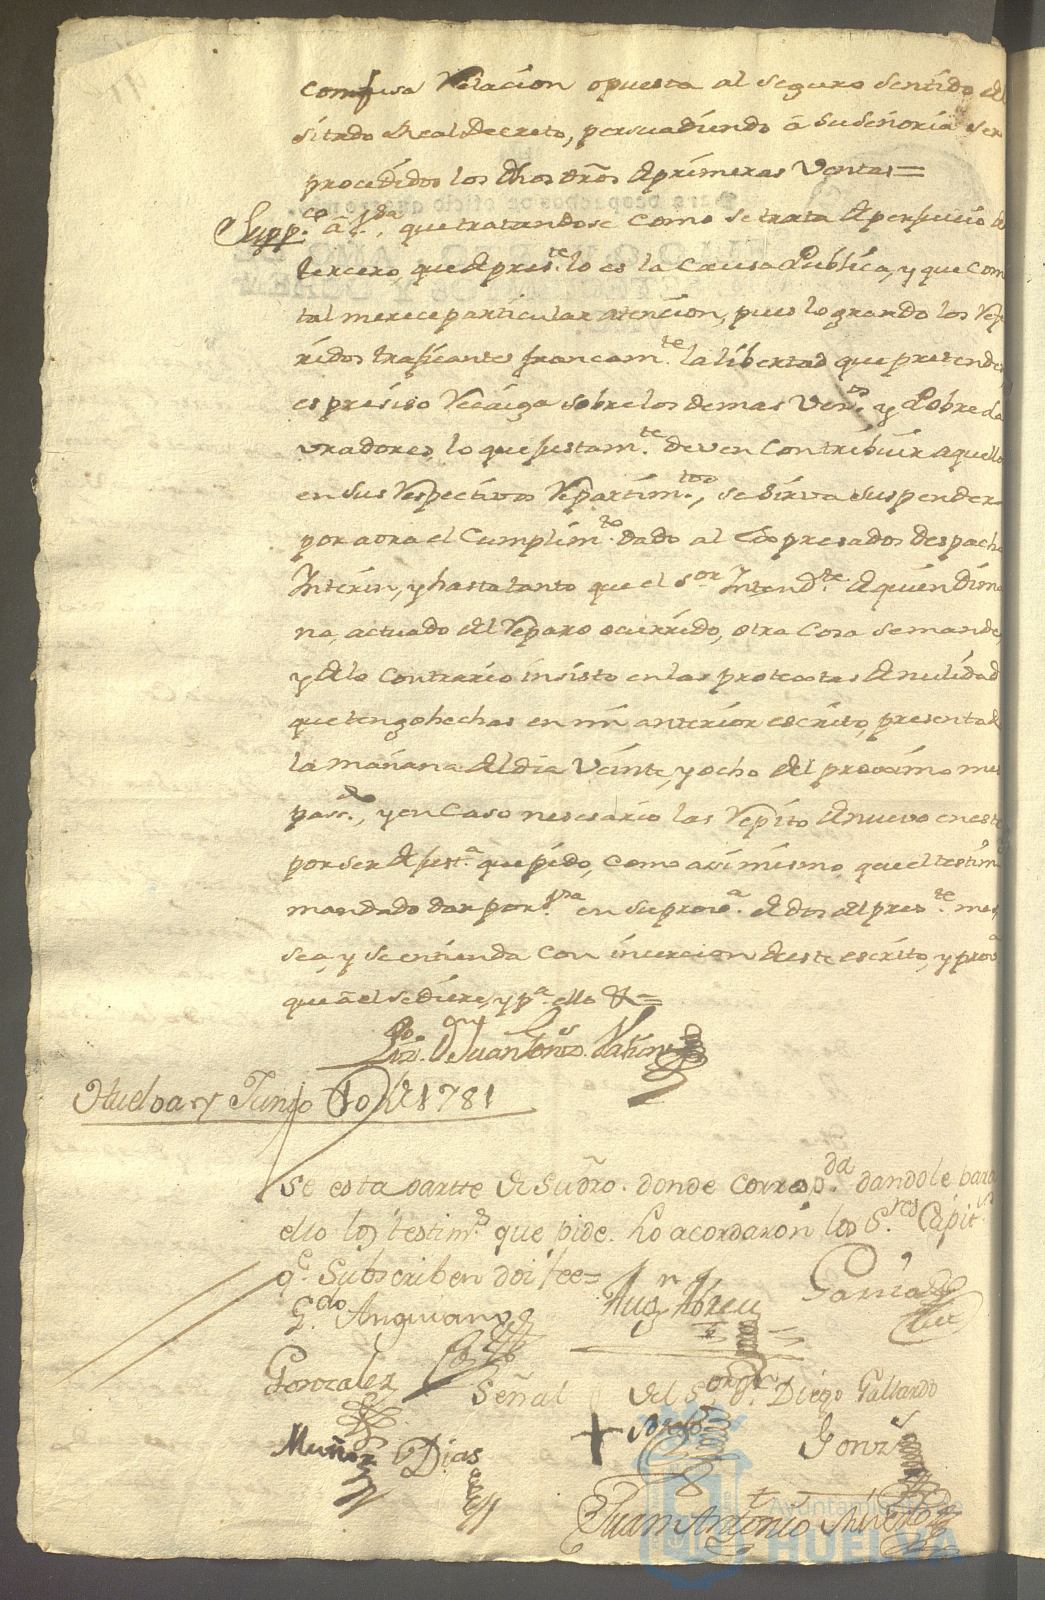 confusa Relacion opuesta al seguro sentido del
sitado Real Decreto, persuadiendo a su señoria ser
procedidos los dhos dros de primeras Ventas=
Supp.co a V.sia, que tratandose como se trata de perjuicio de
tercero, que de pres.te lo es la Causa Publica, y que com
tal merece particular atencion, pues logrando los Refe
ridos traficantes francam.te la libertad que pretenden
es presiso Recaiga sobre los demas Vez.os y Pobres la
vradores, lo que justam.te deven contribuir aquellos
en sus Respectivos Repartim.tos, se sirva suspender
por aora el Cumplim.to dado al Expresados despacho
Interin, y hasta tanto que el S.or Intend.te de quien dima
na, actuado del Reparo ocurrido, otra Cosa se mande,
y de lo contrario insisto en las protestas de nulidad
que tengo hechas en mi anterior escrito, presentado
la mañana del dia Veinte, y ocho del procsimo mes
pass.do, y en Caso nesesario las Repito de nuevo en este
por ser de just.a que pido, como asimismo, que el testim
mandado dar por V.sa en su prov.a de dos del pres.te mes
sea, y se entienda con insercion de este escrito, y prov.a
que a el se diere, y p.a ello &=
Liz.do D.n Juan
Huelva y Junio 10 de 1781
Se esta partte de Su dro. donde corresp.da dandole para
ello los testim.s que pide. Lo acordaron los S.res Capit.s
q.e Subscriben doi fee=
G.do Anguiano
Abreu
Garcia
Gonzalez
Señal del S.or D.n Diego Gallardo
Muñoz Dias + Gonz.s
Juan Antonio
Ayuntamiento de
HUELVA